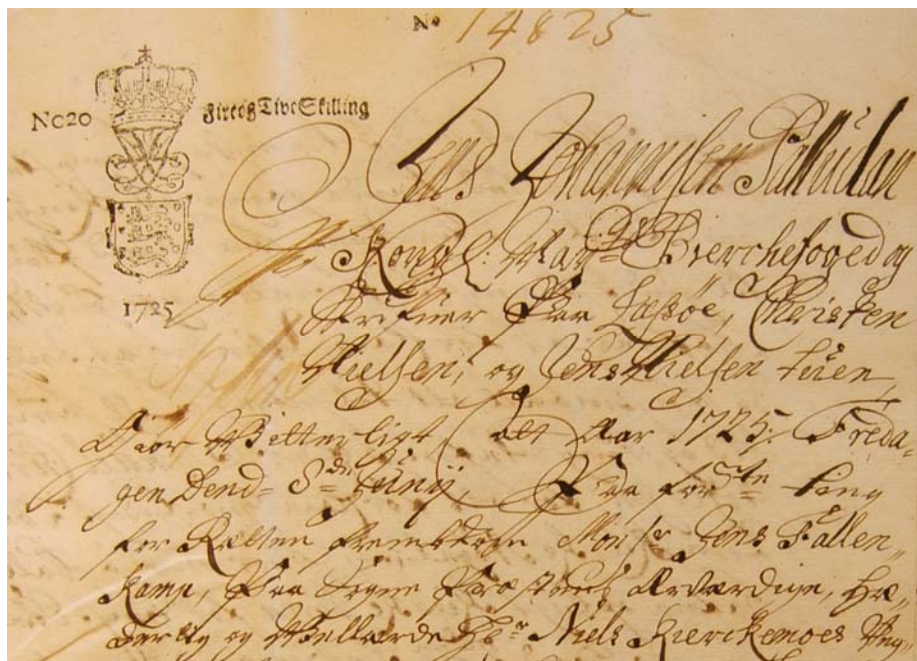 No 14825
No 20 Fire og Tive Skilling
1725
Jens Johannesen Palludan
Kongl: May: Bierchefoged og
Skrifuer paa Læssøe, Christen
Nielsen, og Jens Nielsen
Giør Witterligt att Aar 1725. Freda-
gen Dend 8de Junij, Paa for ting
for Rætten fremkom Monsr Jens Fallen
Kamp, paa Egne Ærværdige, Hæ
derlig og Wellærde Hr Niels Kierckemoes